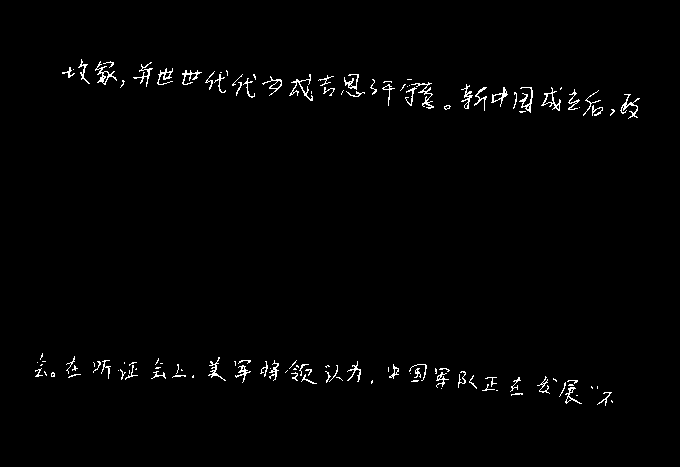 坟冢,并世世代代为成吉思汗守墓。新中国成立后,政
会。在听证会上,美军将领认为,中国军队正在发展“不